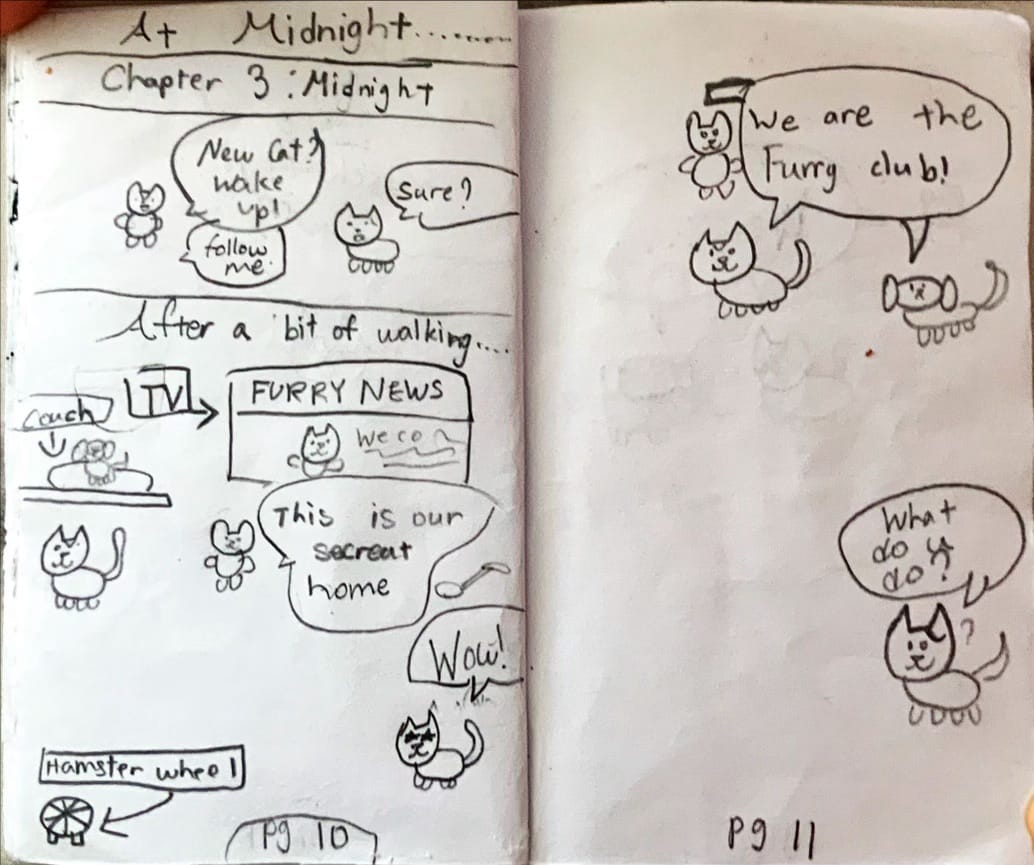 At Midnight..........
Chapter 3 : Midnight
New Cat?
wake
up!
follow
me.
Sure?
After a bit of walking....
Couch
TV
FURRY NEWS
We co
This is our
secreat
home
Wow!
Hamster wheel
Pg 10
We are the
Furry club!
What
do y
do?
?
Pg 11